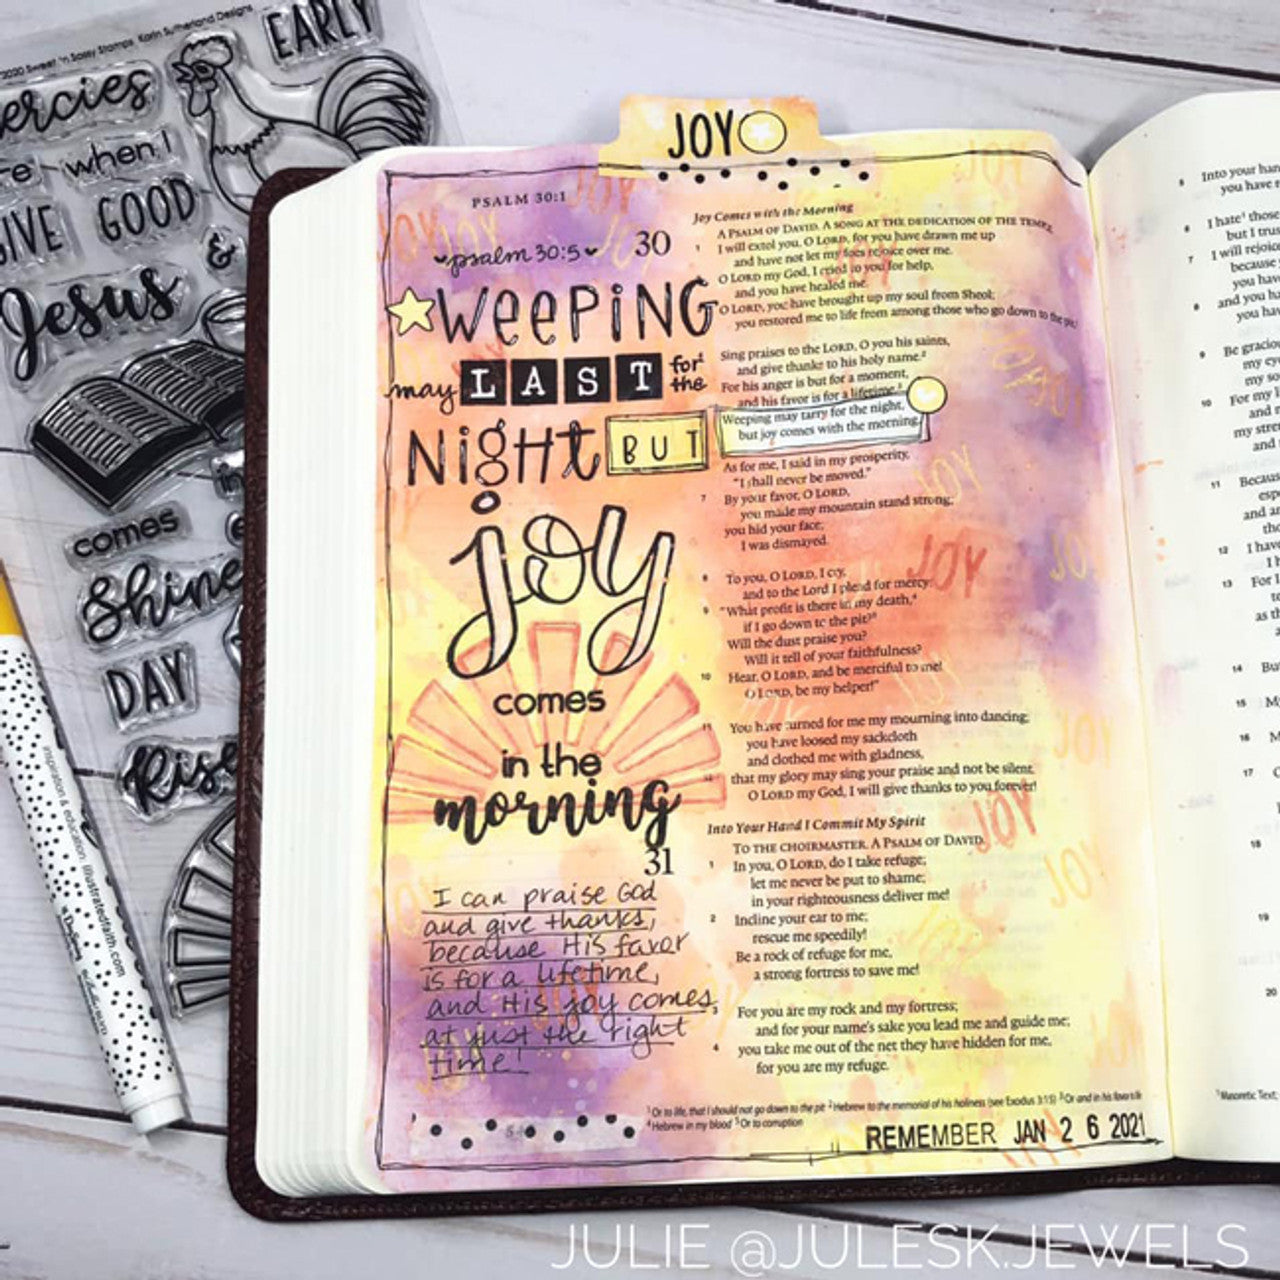 2020 Sweet 'n Sassy Stamps Karin Sutherland Designs
EARLY
ercies
re when I
GIVE GOOD
&
Jesus
comes
Shine
DAY
Rise
inspiration & education: illustratedfaith.com
JOY
PSALM 30:1
psalm 30:5
30
WEEPING
may LAST for the
NIGHT BUT
joy
comes
in the
morning
31
I can praise God
and give thanks,
because His favor
is for a lifetime,
and His joy comes
at just the right
time!
Joy Comes with the Morning
A PSALM OF DAVID. A SONG AT THE DEDICATION OF THE TEMPLE.
1 I will extol you, O LORD, for you have drawn me up
and have not let my foes rejoice over me.
O LORD my God, I cried to you for help,
and you have healed me.
O LORD, you have brought up my soul from Sheol;
you restored me to life from among those who go down to the pit.¹
Sing praises to the LORD, O you his saints,
and give thanks to his holy name.²
For his anger is but for a moment,
and his favor is for a lifetime.³
Weeping may tarry for the night,
but joy comes with the morning.
As for me, I said in my prosperity,
"I shall never be moved."
7 By your favor, O LORD,
you made my mountain stand strong;
you hid your face;
I was dismayed.
8 To you, O LORD, I cry,
and to the Lord I plead for mercy:
9 "What profit is there in my death,⁴
if I go down to the pit?⁵
Will the dust praise you?
Will it tell of your faithfulness?
10 Hear, O LORD, and be merciful to me!
O LORD, be my helper!"
11 You have turned for me my mourning into dancing;
you have loosed my sackcloth
and clothed me with gladness,
12 that my glory may sing your praise and not be silent.
O LORD my God, I will give thanks to you forever!
Into Your Hand I Commit My Spirit
TO THE CHOIRMASTER. A PSALM OF DAVID.
1 In you, O LORD, do I take refuge;
let me never be put to shame;
in your righteousness deliver me!
2 Incline your ear to me;
rescue me speedily!
Be a rock of refuge for me,
a strong fortress to save me!
3 For you are my rock and my fortress;
and for your name's sake you lead me and guide me;
4 you take me out of the net they have hidden for me,
for you are my refuge.
¹Or to life, that I should not go down to the pit ²Hebrew to the memorial of his holiness (see Exodus 3:15) ³Or and in his favor is life
⁴Hebrew in my blood ⁵Or to corruption
REMEMBER JAN 2 6 2021
5 Into your han
you have r
6 I hate¹ those
but I trus
7 I will rejoic
because y
you have
8 and you ha
you hav
9 Be graciou
my eye
my so
10 For my l
and
my stren
and
11 Because
esp
and an
tho
12 I have
I h
13 For I
to
as th
14 Bu
15 M
16 M
17
18
19
20
¹Masoretic Text;
JULIE @JULESK.JEWELS